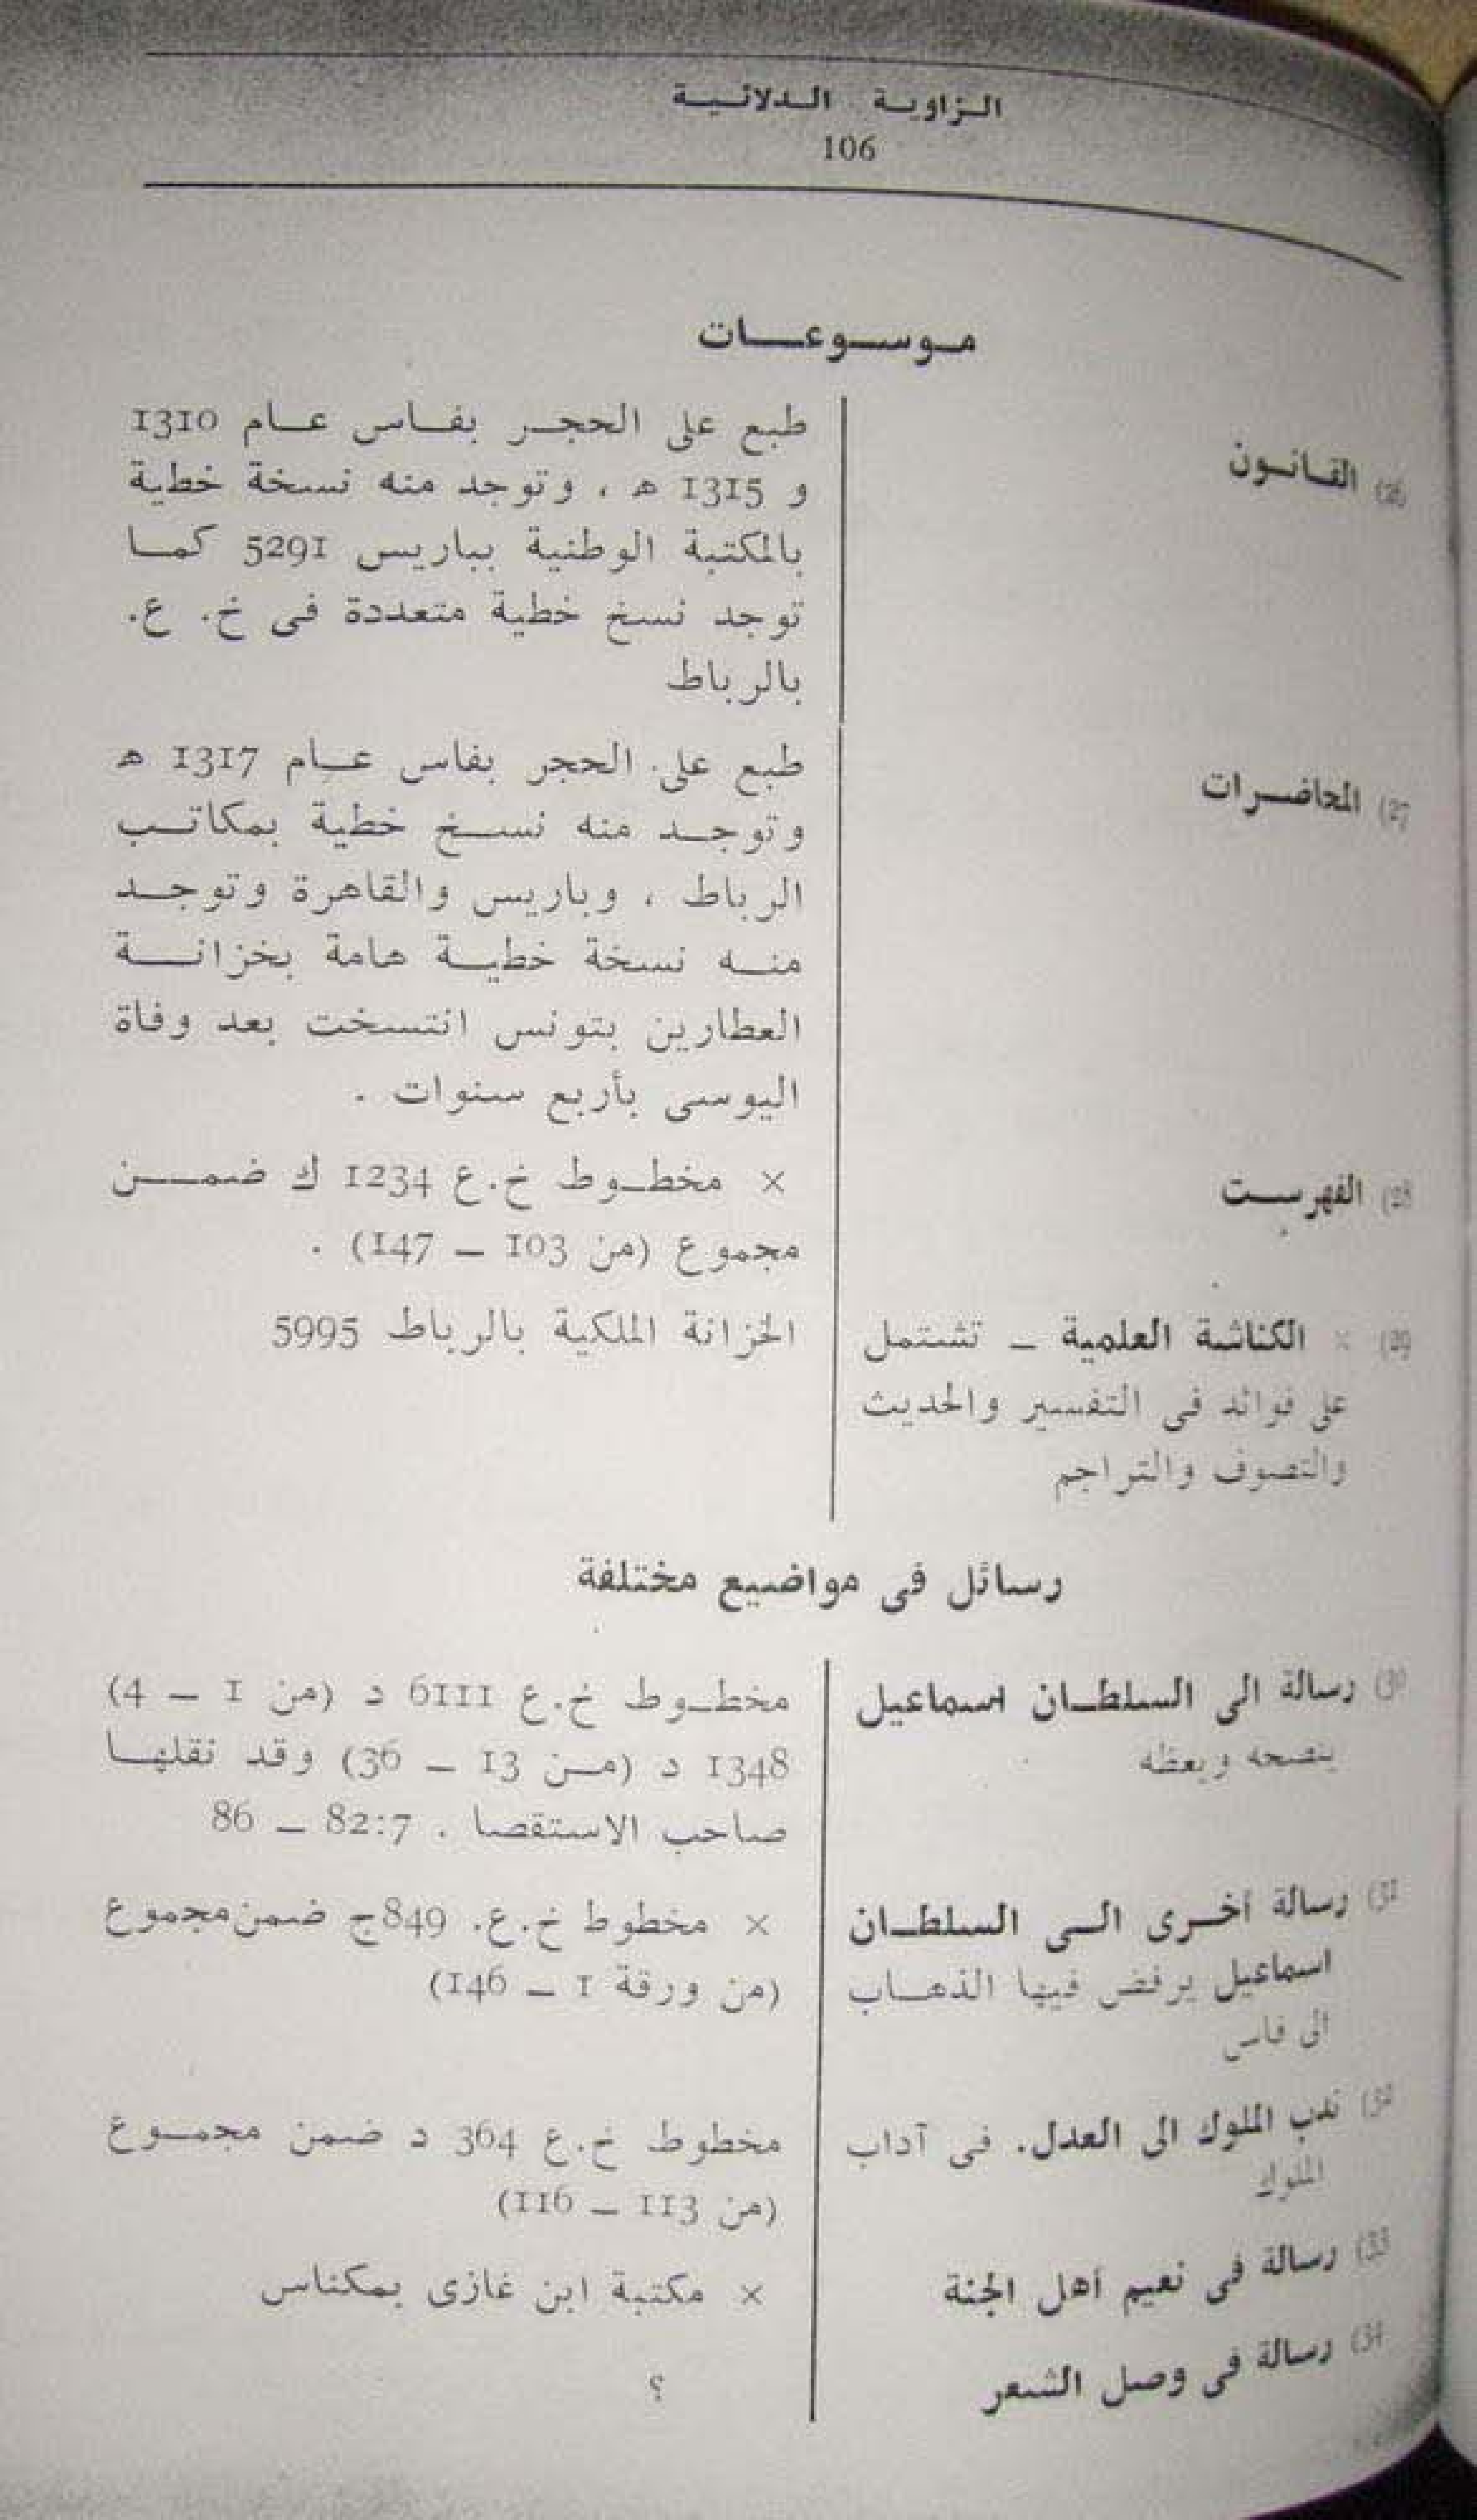 الزاوية الدلائية
106
موسوعات
26) القانون
طبع على الحجر بفاس عام 1310
و 1315 هـ ، وتوجد منه نسخة خطية
بالمكتبة الوطنية بباريس 5291 كما
توجد نسخ خطية متعددة فى خ. ع.
بالرباط
27) المحاضرات
طبع على الحجر بفاس عام 1317 هـ
وتوجد منه نسخ خطية بمكاتب
الرباط ، وباريس والقاهرة وتوجد
منه نسخة خطية هامة بخزانة
العطارين بتونس انتسخت بعد وفاة
اليوسى بأربع سنوات .
28) الفهرست
× مخطوط خ.ع 1234 ك ضمن
مجموع (من 103 – 147) .
29) × الكناشة العلمية – تشتمل
على فوائد فى التفسير والحديث
والتصوف والتراجم
الخزانة الملكية بالرباط 5995
رسائل فى مواضيع مختلفة
30) رسالة الى السلطان اسماعيل
ينصحه ويعظه
مخطوط خ.ع 6111 د (من 1 – 4)
1348 د (من 13 – 36) وقد نقلها
صاحب الاستقصا . 82:7 – 86
31) رسالة أخرى الى السلطان
اسماعيل يرفض فيها الذهاب
الى فاس
× مخطوط خ.ع. 849ج ضمن مجموع
(من ورقة 1 – 146)
32) ندب الملوك الى العدل. فى آداب
الملوك
مخطوط خ.ع 364 د ضمن مجموع
(من 113 – 116)
33) رسالة فى نعيم أهل الجنة
× مكتبة ابن غازى بمكناس
34) رسالة فى وصل الشعر
؟